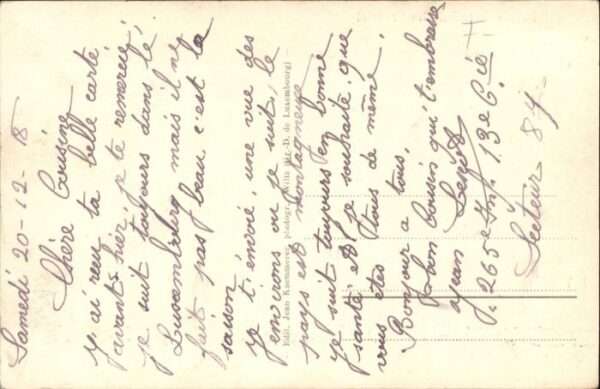 Samedi 20-12-18
Chère Cousine
j ai reçu ta belle carte
javants hier, je te remercie,
je suit toujours dans le
Luxembourg mais il ne
fait pas beau c'est la
saison
je t'envoie, une vue des
environs ou je suit, le
pays est montagneuse
je suit toujours en bonne
santé et je souhaite que
vous etes tous de même.
Bonjour a tous,
Ton cousin qui t'embrasse
Jean
265e Inf. 13e 6. cie
Secteur 84
Edit. Jean Kaemmerer, (Gr.-D. de Luxembourg)